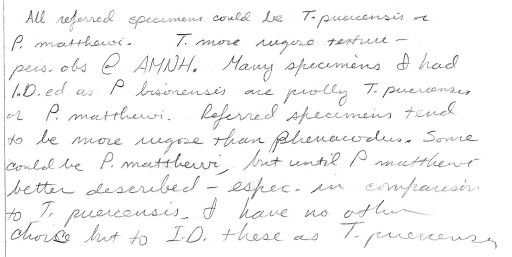 All referred specimens could be T. puercensis or
P. matthewi. T. more rugose texture -
pers. obs @ AMNH. Many specimens I had
I.D.ed as P bisonensis are prolly T. puercensis
or P. matthewi. Referred specimens tend
to be more rugose than Phenacodus. Some
could be P. matthewi, but until P matthewi
better described - espec. in comparison
to T. puercensis. I have no other
choice but to I.D. these as T. puercensis